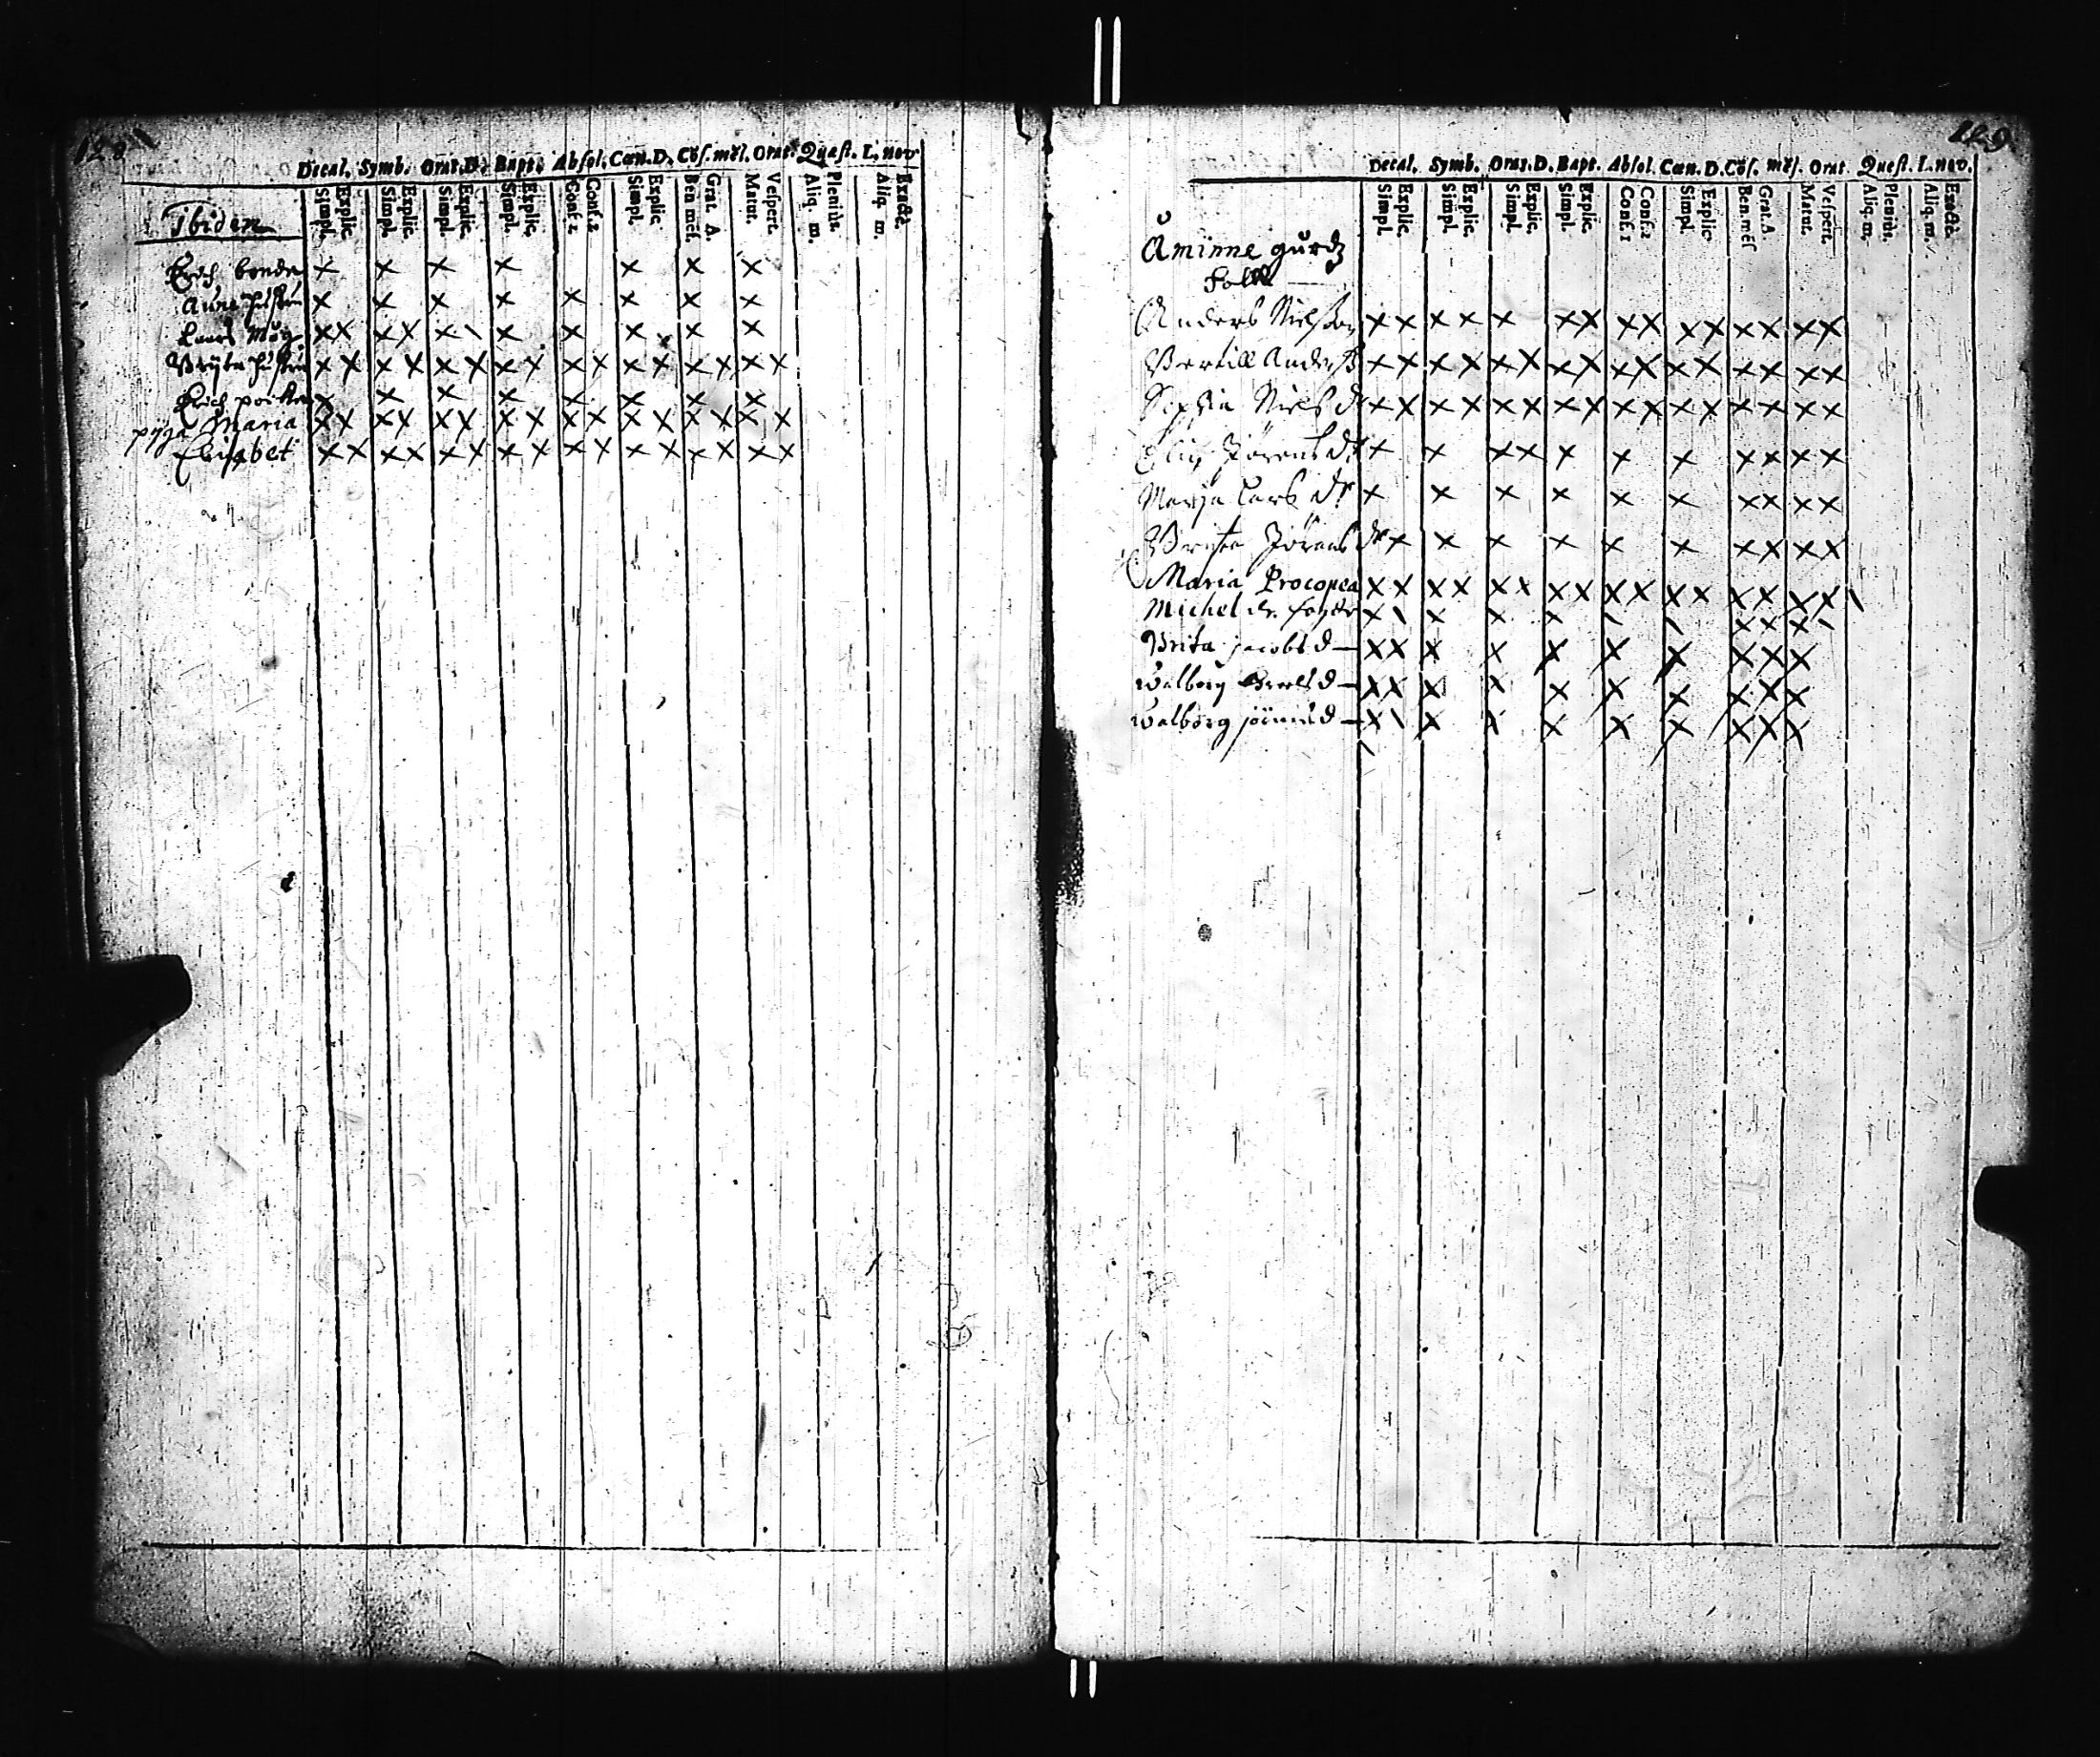 128
Decal. Symb. Orat.D. Bapt. Absol. Cœn.D. Cõf. mẽſ. Orat. Quæſt. L. nov
Simpl. Explic. Simpl. Explic. Simpl. Explic. Simpl. Explic. Conf.1 Conf.2 Simpl. Explic Ben mẽſ. Grat. A. Matut. Veſpert. Aliq. m. Pleniùs. Aliq. m. Exactè.
Ibidem
Erich bonde × × × × × × ×
hustru × × × × × × × ×
Lars Måg ×× ×× ×\ × × × × ×
Bryta hustru ×× ×× ×× ×× ×× ×× ×× ××
Erich × × × × × × × ×
piga Maria ×× ×× ×× ×× ×× ×× ×× ××
Elisabet ×× ×× ×× ×× ×× ×× ×× ××
129
Decal. Symb. Orat.D. Bapt. Absol. Cœn.D. Cõſ. mẽſ. Orat. Quæſt. L. nov.
Simpl. Explic. Simpl. Explic. Simpl. Explic. Simpl. Explic. Conf.1 Conf.2 Simpl. Explic Ben.mẽſ Grat.A. Matut. Veſpert. Aliq. m. Pleniùs. Aliq. m. Exactè.
Åminne gårdz
Folk
Anders Nielsson ×× ×× × ×× ×× ×× ×× ××
Bertill Anderß ×× ×× ×× ×× ×× ×× ×× ××
Sophia Niels dr ×× ×× ×× ×× ×× ×× ×× ××
Jörens dr × × ×× × × × ×× ××
Marja Lars dr × × × × × × ×× ××
Bryta Jörens dr × × × × × × ×× ××
Maria Procopea ×× ×× ×× ×× ×× ×× ×× ××\
Michel ×\ × × × \ \ ×× ×\
Brita jacobs d — ×× × × × × × ×× ×
Walborg d — ×× × × × × × ×× ×
Walborg d — ×\ × × × × × ×× ×